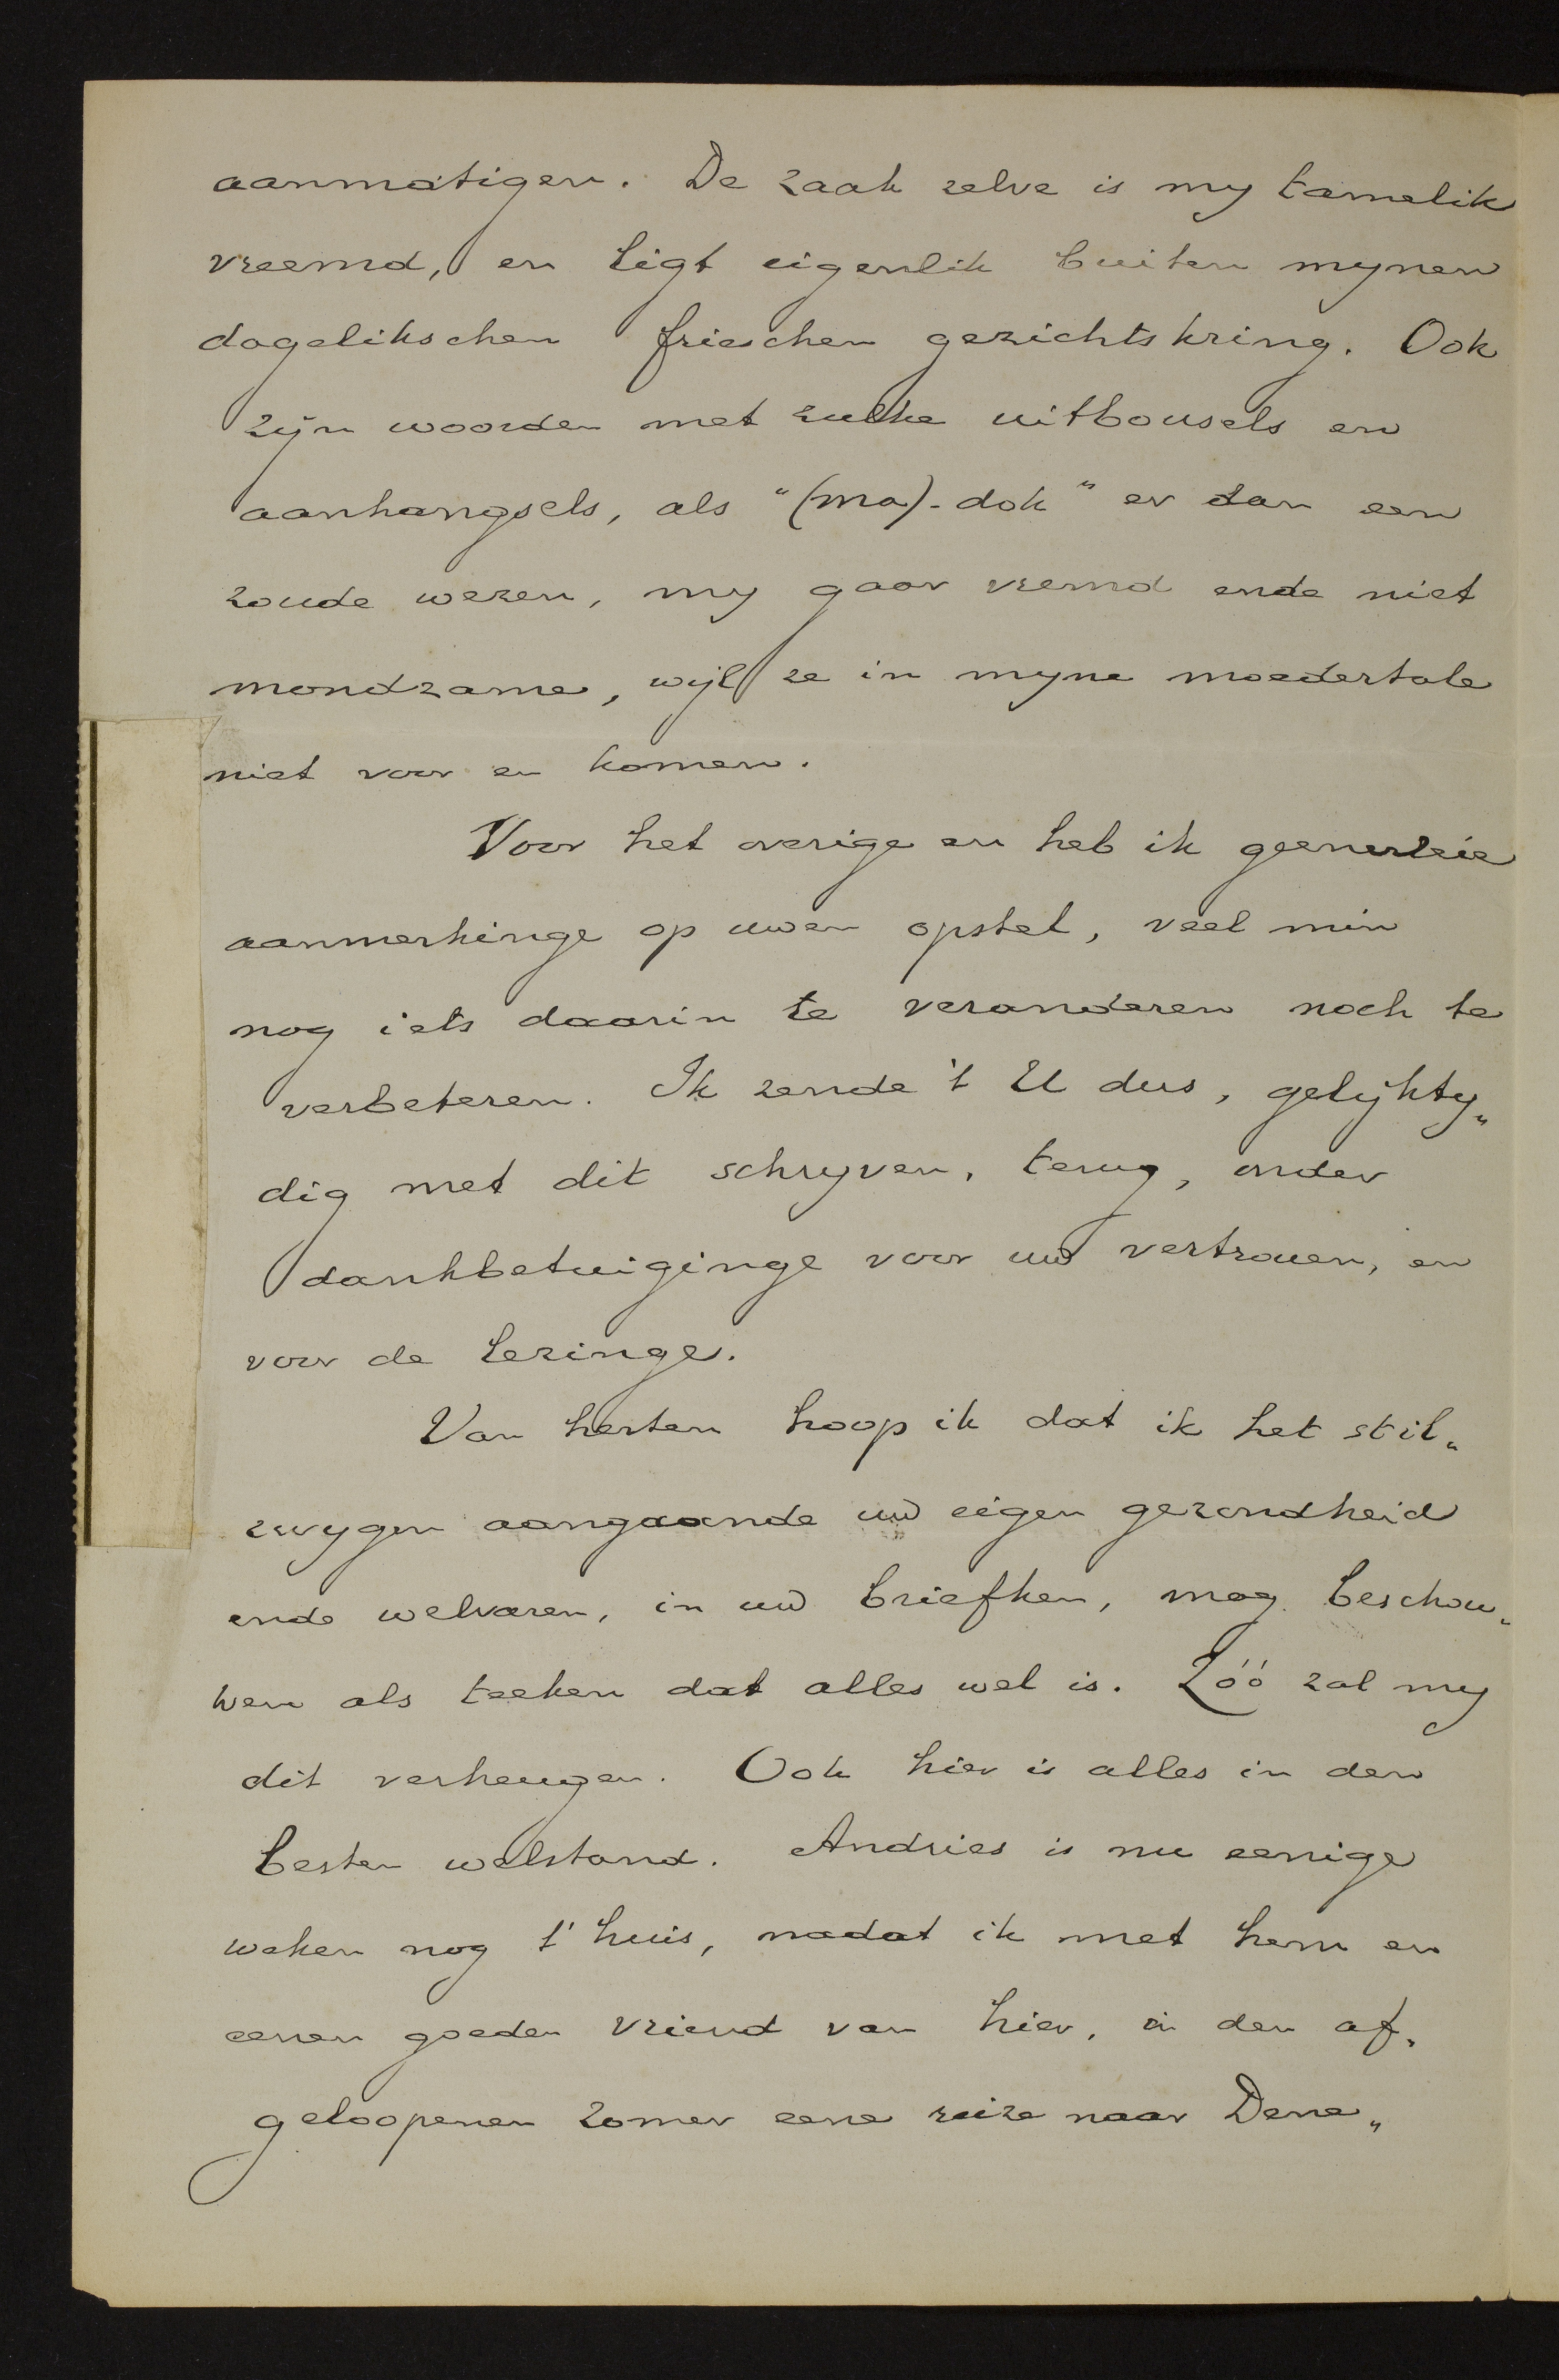 aanmatigen. De zaak zelve is my tamelik
vreemd, en ligt eigenlik buiten mynen
dagelikschen frieschen gezichtskring. Ook
zijn woorden met zulke uitbousels en
aanhangsels, als “(ma)-dok” er dan een
zoude wezen, my gaar vremd ende niet
mondzame, wijl ze in myne moedertale
niet voor en komen.
Voor het overige en heb ik geenerleie
aanmerkinge op uwen opstel, veel min
nog iets daarin te veranderen noch te
verbeteren. Ik zende 't U dus, gelijkty„
dig met dit schryven, terug, onder
dankbetuiginge voor uw vertrouen, en
voor de lezinge.
Van herten hoop ik dat ik het stil„
zwygen aangaande uw eigen gezondheid
ende welvaren, in uw briefken, mag beschou„
wen als teeken dat alles wel is. Zóó zal my
dit verheugen. Ook hier is alles in den
besten welstand. Andries is nu eenige
weken nog t'huis, nadat ik met hem en
eenen goeden vriend van hier, in den af„
geloopenen zomer eene reize naar Dene„